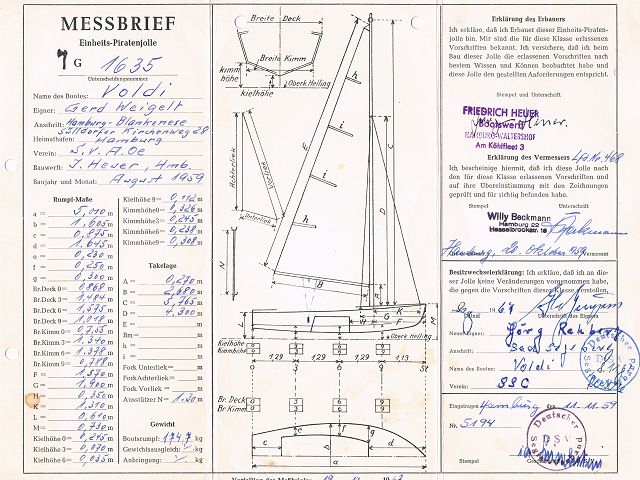 MESSBRIEF
Einheits-Piratenjolle
G 1635
Unterscheidungsnummer
Name des Bootes: Voldi
Eigner: Gerd Weigelt
Anschrift: Hamburg-Blankenese
Sülldorfer Kirchenweg 28
Heimathafen: Hamburg
Verein: S.V.A.Oe
Bauwerft: J. Heuer, Hmb.
Baujahr und Monat: August 1959
Rumpf-Maße
a = 5,010 m
b = 1.605 m
c = 0.875 m
d = 1.645 m
e = 0.230 m
f = 0.250 m
g = 0.300 m
Br.Deck 0 = 0.868 m
Br.Deck 3 = 1.484 m
Br.Deck 6 = 1.575 m
Br.Deck 9 = 1.018 m
Br.Kimm 0 = 0.755 m
Br.Kimm 3 = 1.340 m
Br.Kimm 6 = 1.378 m
Br.Kimm 9 = 0.788 m
F = 1.570 m
G = 1.900 m
H = 0.350 m
K = 1.310 m
L = 0.610 m
M = 0.730 m
Kielhöhe 0 = 0.245 m
Kielhöhe 3 = 0.070 m
Kielhöhe 6 = 0.035 m
Kielhöhe 9 = 0.112 m
Kimmhöhe 0 = 0.326 m
Kimmhöhe 3 = 0.245 m
Kimmhöhe 6 = 0.238 m
Kimmhöhe 9 = 0.308 m
Takelage
A = 0.270 m
B = 2.680 m
C = 5.765 m
D = 4.300 m
E = m
Bm = m
h = m
i = m
Fock Unterliek = m
Fock Achterliek = m
Fock Vorliek = m
Ausstützer N = 1.30 m
Gewicht
Bootsrumpf: 174.7 kg
Gewichtsausgleich: kg
Anbringung: kg
Breite Deck
Breite Kimm
kimm höhe
Oberk.Helling
kielhöhe
Achterliek
Vorliek
Unterliek
h
i
i
h
E
C
D
B
A
N
K
G
F
L
M
Oberk Helling
Kielhöhe 0 3 6 9
Kimmhöhe 0 3 6 9
1,29 1,29 1,29 1,13 St
Br.Deck 0 3 6 9
Br.Kimm 0 3 6 9
e f g
c b d
a
Erklärung des Erbauers
Ich erkläre, daß ich Erbauer dieser Einheits-Piratenjolle bin. Mir sind die für diese Klasse erlassenen
Vorschriften bekannt. Ich versichere, daß ich beim
Bau dieser Jolle die einzelnen Vorschriften nach
bestem Wissen und Können beobachtet habe und
diese Jolle den gestellten Anforderungen entspricht.
Stempel und Unterschrift
FRIEDRICH HEUER
Bootswerft
HAMBURG-WALTERSHOF
Am Köhlfleet 3
Erklärung des Vermessers
Ich bescheinige hiermit, daß ich diese Jolle nach
den für diese Klasse erlassenen Vorschriften und
auf ihre Übereinstimmung mit den Zeichnungen
geprüft und für richtig befunden habe.
Stempel und Unterschrift
Willy Beckmann
Hamburg 22
Hamburg, 20. Oktober 1959
Vermesser
Besitzwechselerklärung: Ich erkläre, daß an dieser Jolle keine Veränderungen vorgenommen sind,
die gegen die Vorschriften dieser Klasse verstoßen,
1961
Unterschrift des Eigners
Neuer Eigner: Jörg Rehberg
Anschrift:
Name des Bootes: Voldi
Verein: SSC
Eingetragen Hamburg 11.11.59
No. 5194
Deutscher
DSV
Stempel